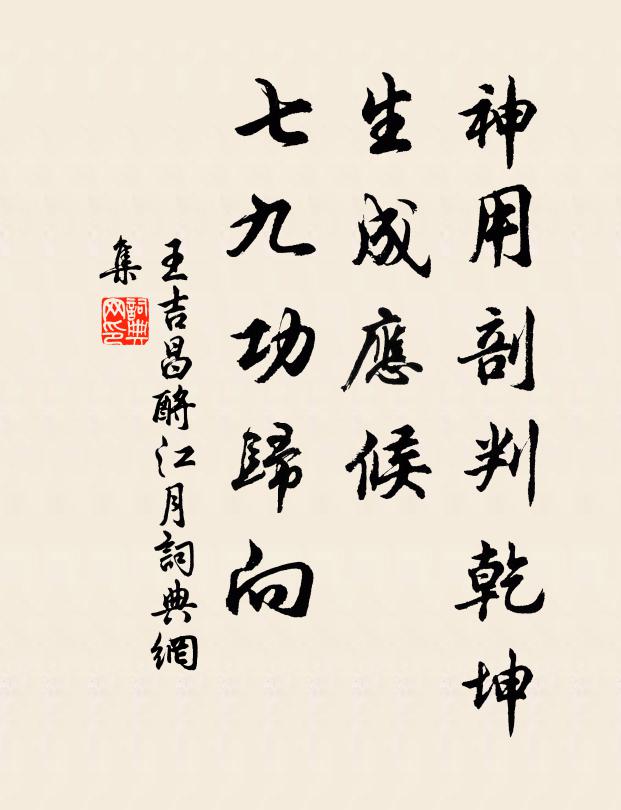 神用剖判乾坤
生成應候
七九功歸向
王吉昌酹江月詞典網
集
詞典網印